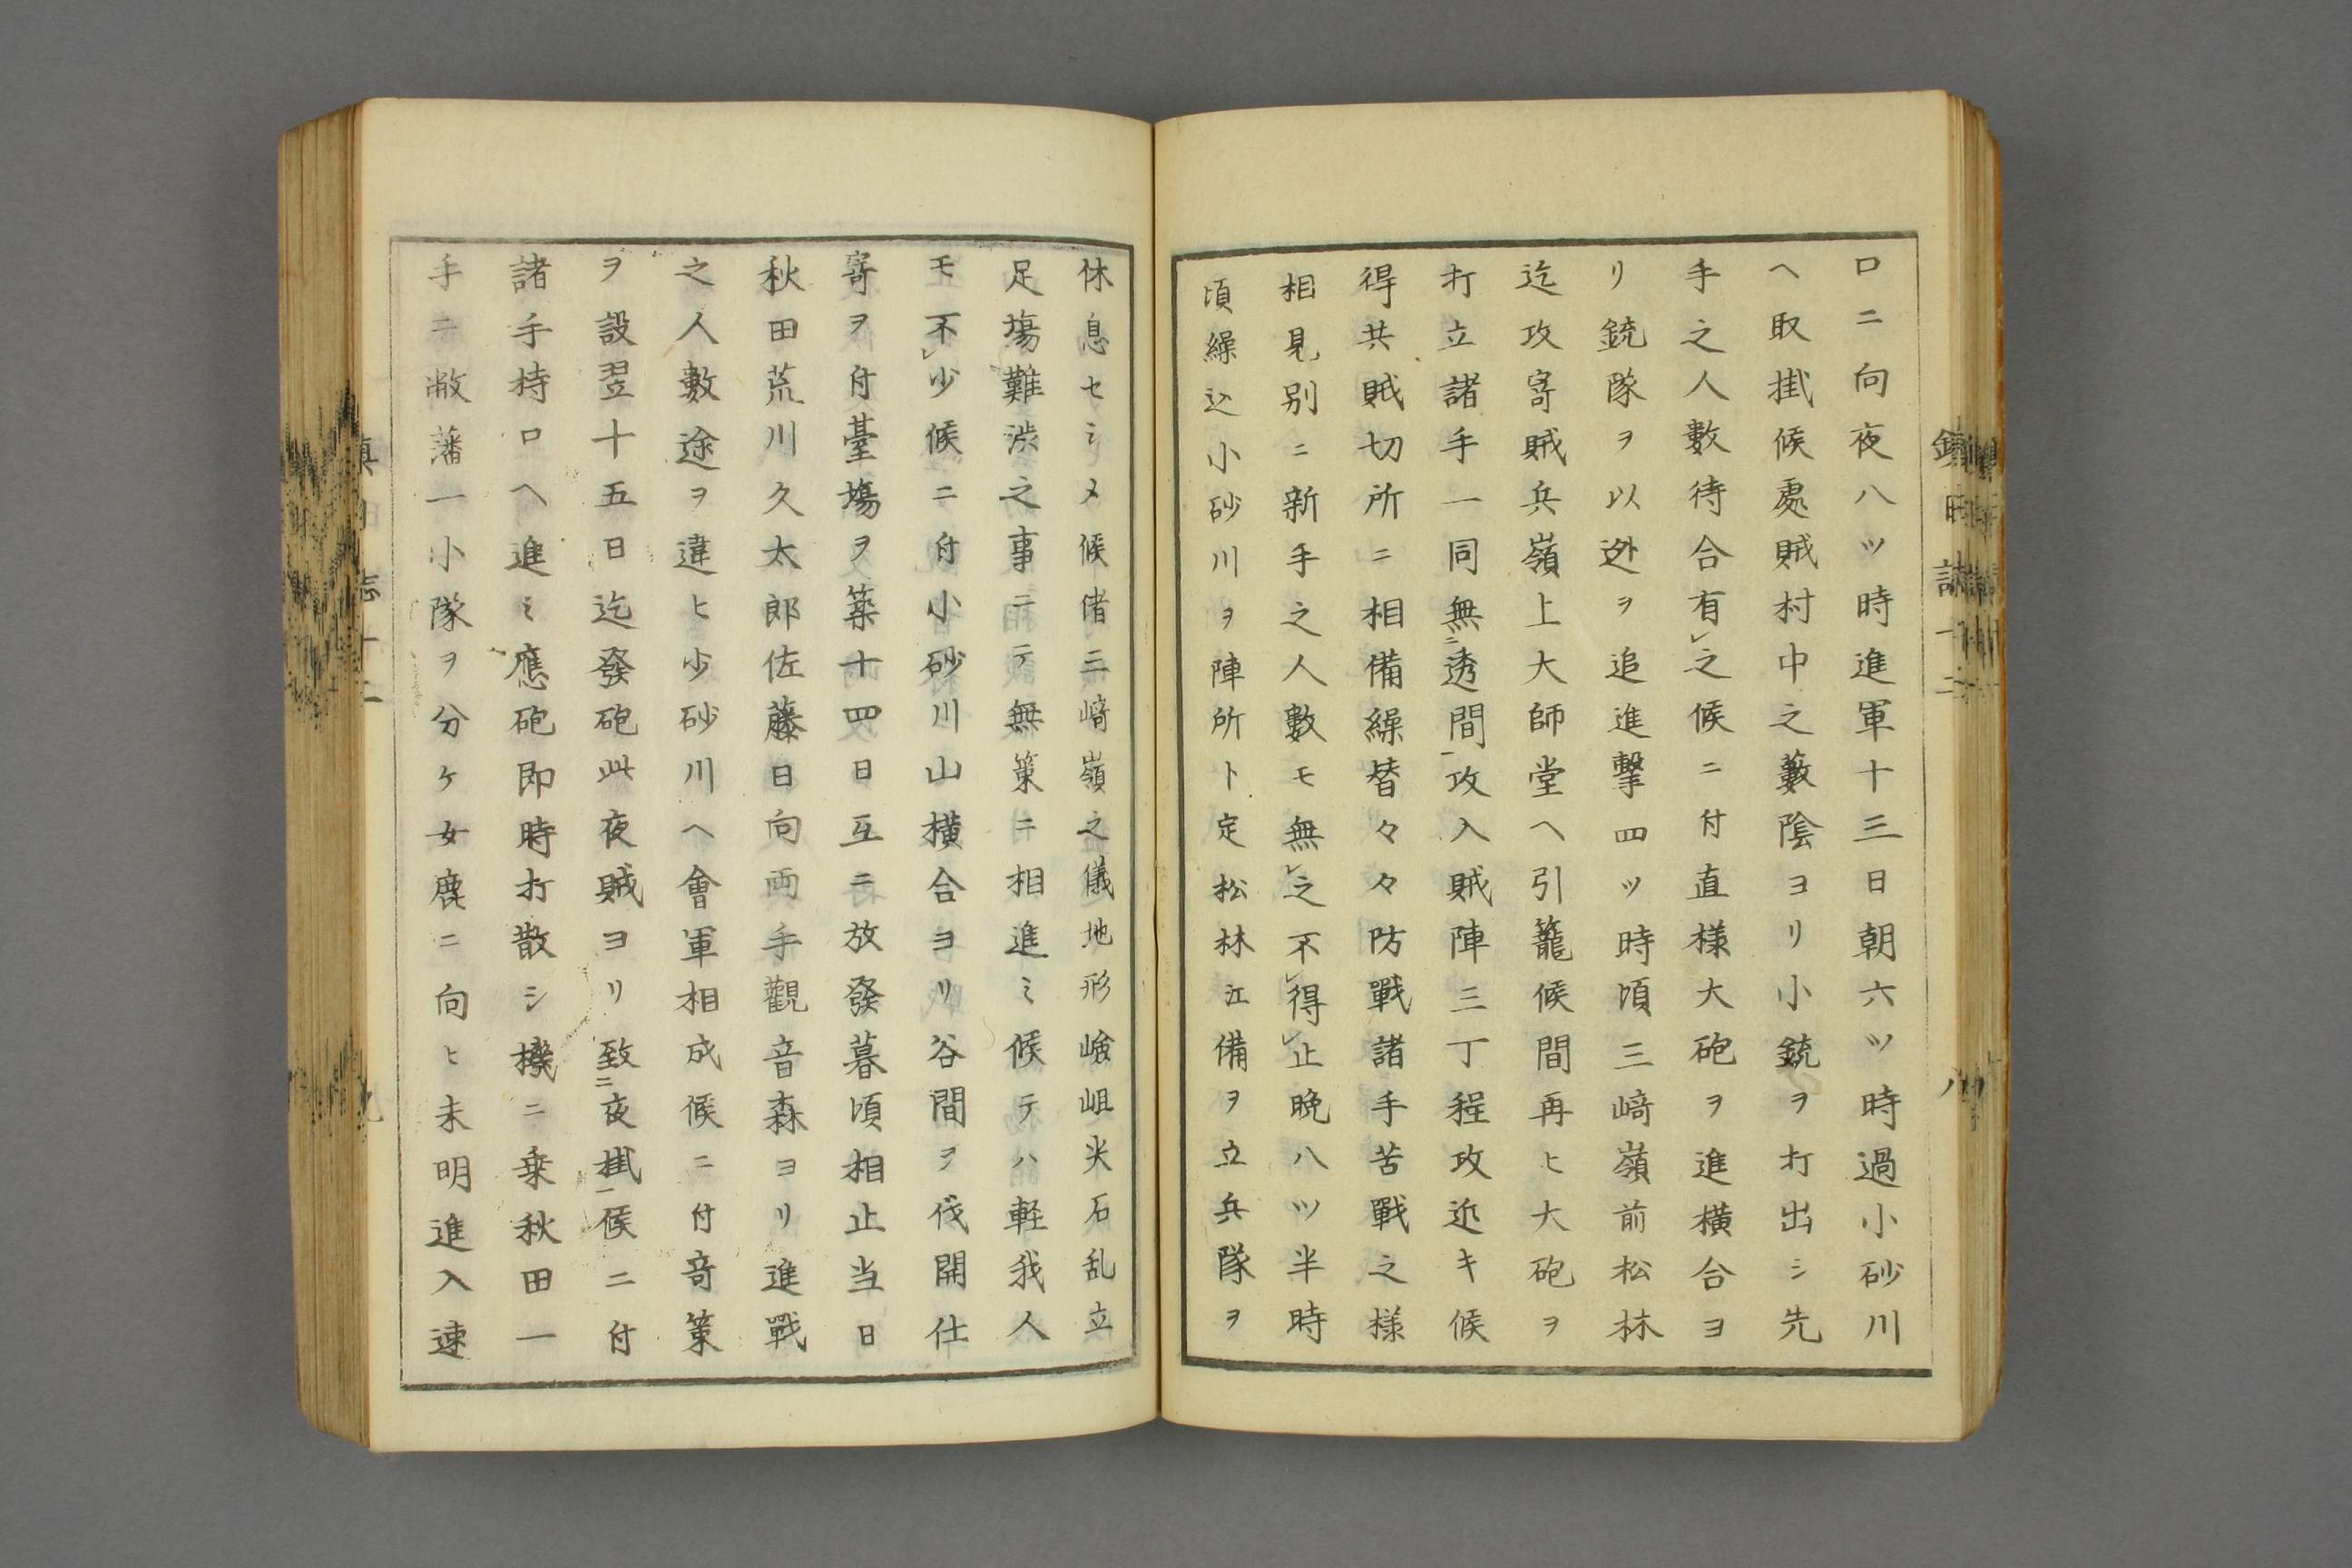 口ニ向夜八ツ時進軍十三日朝六ツ時過小砂川
ヘ取掛候處賊村中之藪陰ヨリ小銃ヲ打出シ先
手之人數待合有レ之候ニ付直様大砲ヲ進横合ヨ
リ銃隊ヲ以迯ヲ追進撃四ツ時頃三﨑嶺前松林
迄攻寄賊兵嶺上大師堂ヘ引籠候間再ヒ大砲ヲ
打立諸手一同無二透間一攻入賊陣三丁程攻近キ候
得共賊切所ニ相備繰替々々防戰諸手苦戰之様
相見別ニ新手之人數モ無レ之不レ得レ止晩八ツ半時
頃繰込小砂川ヲ陣所ト定松林江備ヲ立兵隊ヲ
休息セシメ候偖三﨑嶺之儀地形嶮岨尖石乱立
足場難渋之事ニテ無策ニ相進ミ候テハ軽我人
モ不レ少候ニ付小砂川山横合ヨリ谷間ヲ伐開仕
寄ヲ付臺場ヲ築十四日互ニ放發暮頃相止当日
秋田荒川久太郎佐藤日向両手觀音森ヨリ進戰
之人數途ヲ違ヒ少砂川ヘ會軍相成候ニ付竒策
ヲ設翌十五日迄發砲此夜賊ヨリ致二夜掛一候ニ付
諸手持口ヘ進ミ應砲即時打散シ機ニ乗秋田一
手ニ敝藩一小隊ヲ分ケ女鹿ニ向ヒ未明進入速
鎮日誌十二
八